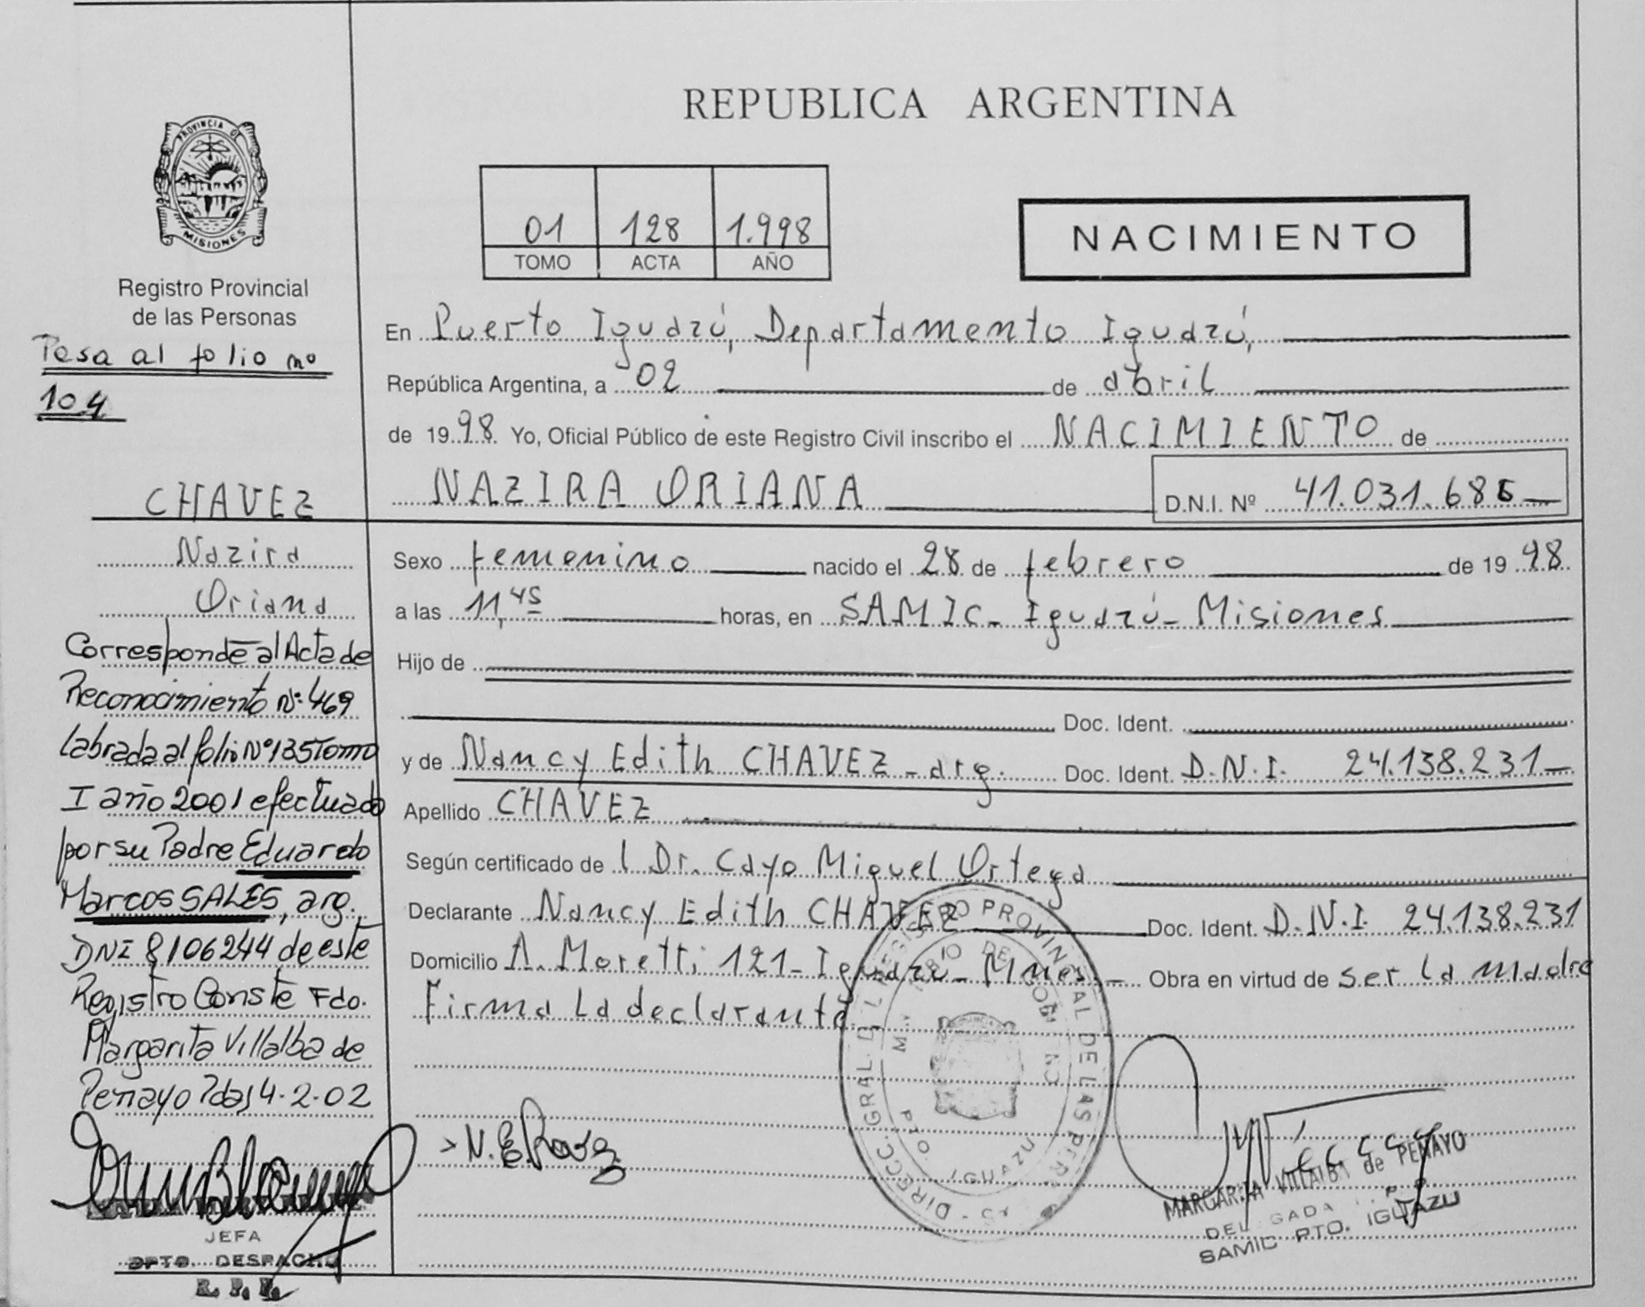 PROVINCIA DE
MISIONES
Registro Provincial
de las Personas
Pasa al folio nº
104
CHAVEZ
Nazira
Oriana
Corresponde al Acta de
Reconocimiento Nº 469
labrada al folio Nº 135 Tomo
I año 2001 efectuado
por su Padre Eduardo
Marcos SALES, arg.
DNI 8106244 de este
Registro Conste Fdo.
Margarita Villalba de
Penayo Pdas 4-2-02
JEFA
DPTO. DESPACHO
R. P. P.
REPUBLICA ARGENTINA
01 128 1.998
TOMO ACTA AÑO
NACIMIENTO
En Puerto Iguazú, Departamento Iguazú,
República Argentina, a 02 de abril
de 1998. Yo, Oficial Público de este Registro Civil inscribo el NACIMIENTO de
NAZIRA ORIANA D.N.I. Nº 41.031.68
Sexo femenino nacido el 28 de febrero de 1998.
a las 11,45 horas, en SAMIC- Iguazú- Misiones
Hijo de
Doc. Ident.
y de Nancy Edith CHAVEZ - arg. Doc. Ident. D.N.I. 24.138.231
Apellido CHAVEZ
Según certificado de l Dr. Cayo Miguel Ortega
Declarante Nancy Edith CHAVEZ Doc. Ident. D.N.I. 24.138.231
Domicilio A. Moretti 121- Iguazú- Mnes. - Obra en virtud de ser la madre
Firma La declarante
DIRECC. GRAL. DEL REGISTRO PROVINCIAL DE LAS PERS
PTO IGUAZU
MARGARITA VILLALBA de PENAYO
DELEGADA
SAMIC PTO. IGUAZU